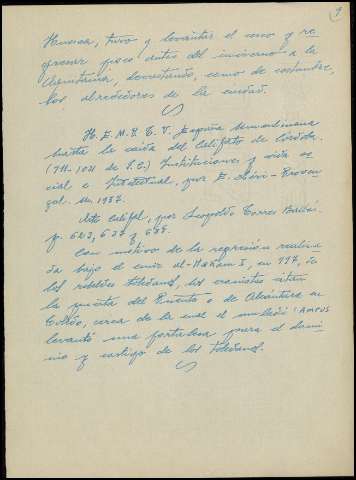 1
Huesca, tuvo q levantar el cerco y re-
gresar poco antes del invierno a la
Aquitania, devastando, como de costumbre,
los alrededores de la ciudad.
H. E. M. P. T. V. España musulmana
hasta la caída del Califato de Córdoba
(711-1031 de J.C.) Instituciones y vida so-
cial e intelectual, por E. Lévi-Proven-
çal. M. 1957.
Arte califal, por Leopoldo Torres Balbás.
p. 623, 638 y 688.
Con motivo de la represión realiza-
da bajo el emir al-Hakam I, en 797, de
los rebeldes toledanos, los cronistas citan
la puerta del Puente o de Alcántara en
Toledo, cerca de la cual el muladí ʿAMRUS
levantó una fortaleza para el domi-
nio y castigo de los toledanos.